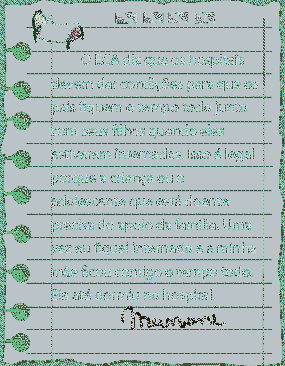 O ECA diz que os hospitais
devem dar condições para que os
pais fiquem o tempo todo junto
com seus filhos quando eles
estiverem internados. Isso é legal
porque a criança ou o
adolescente que está doente
precisa do apoio da família. Uma
vez eu fiquei internado e a minha
mãe ficou comigo o tempo todo.
Ela até dormiu no hospital.